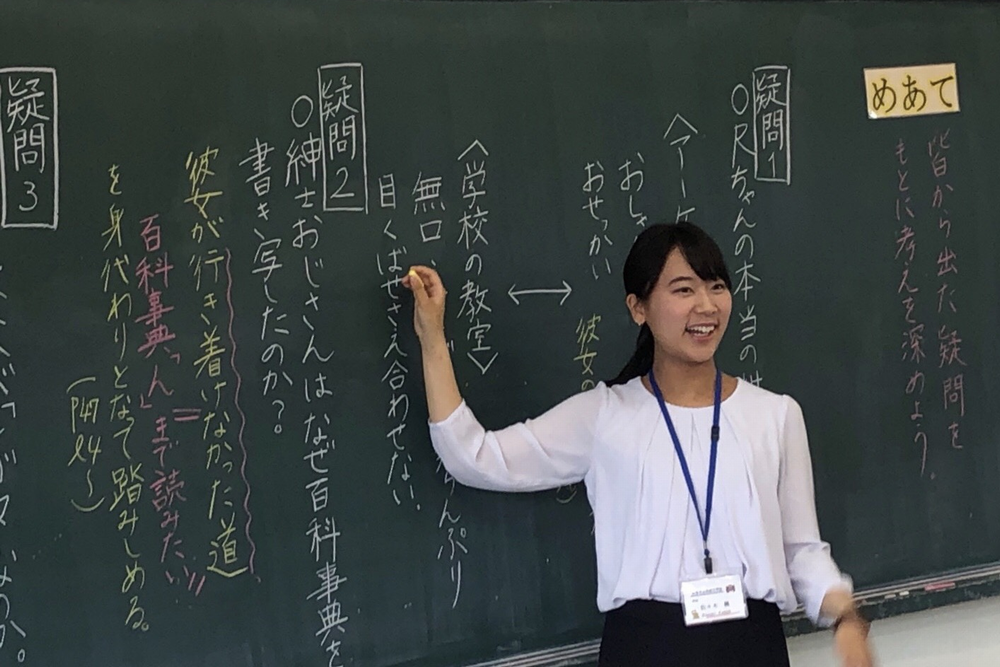 めあて
皆から出た疑問を
もとに考えを深めよう。
疑問1
○Rちゃんの本当の
〈アーケ
おしゃ
おせっかい
彼女の
〈学校の教室〉
無口、 らんぷり
目くばせさえ合わせない。
疑問2
○紳士おじさんはなぜ百科事典を
書き写したのか?
彼女が行き着けなかった道
百科事典「ん」まで読みたい
を身代わりとなって踏みしめる。
(P47 l4〜)
疑問3